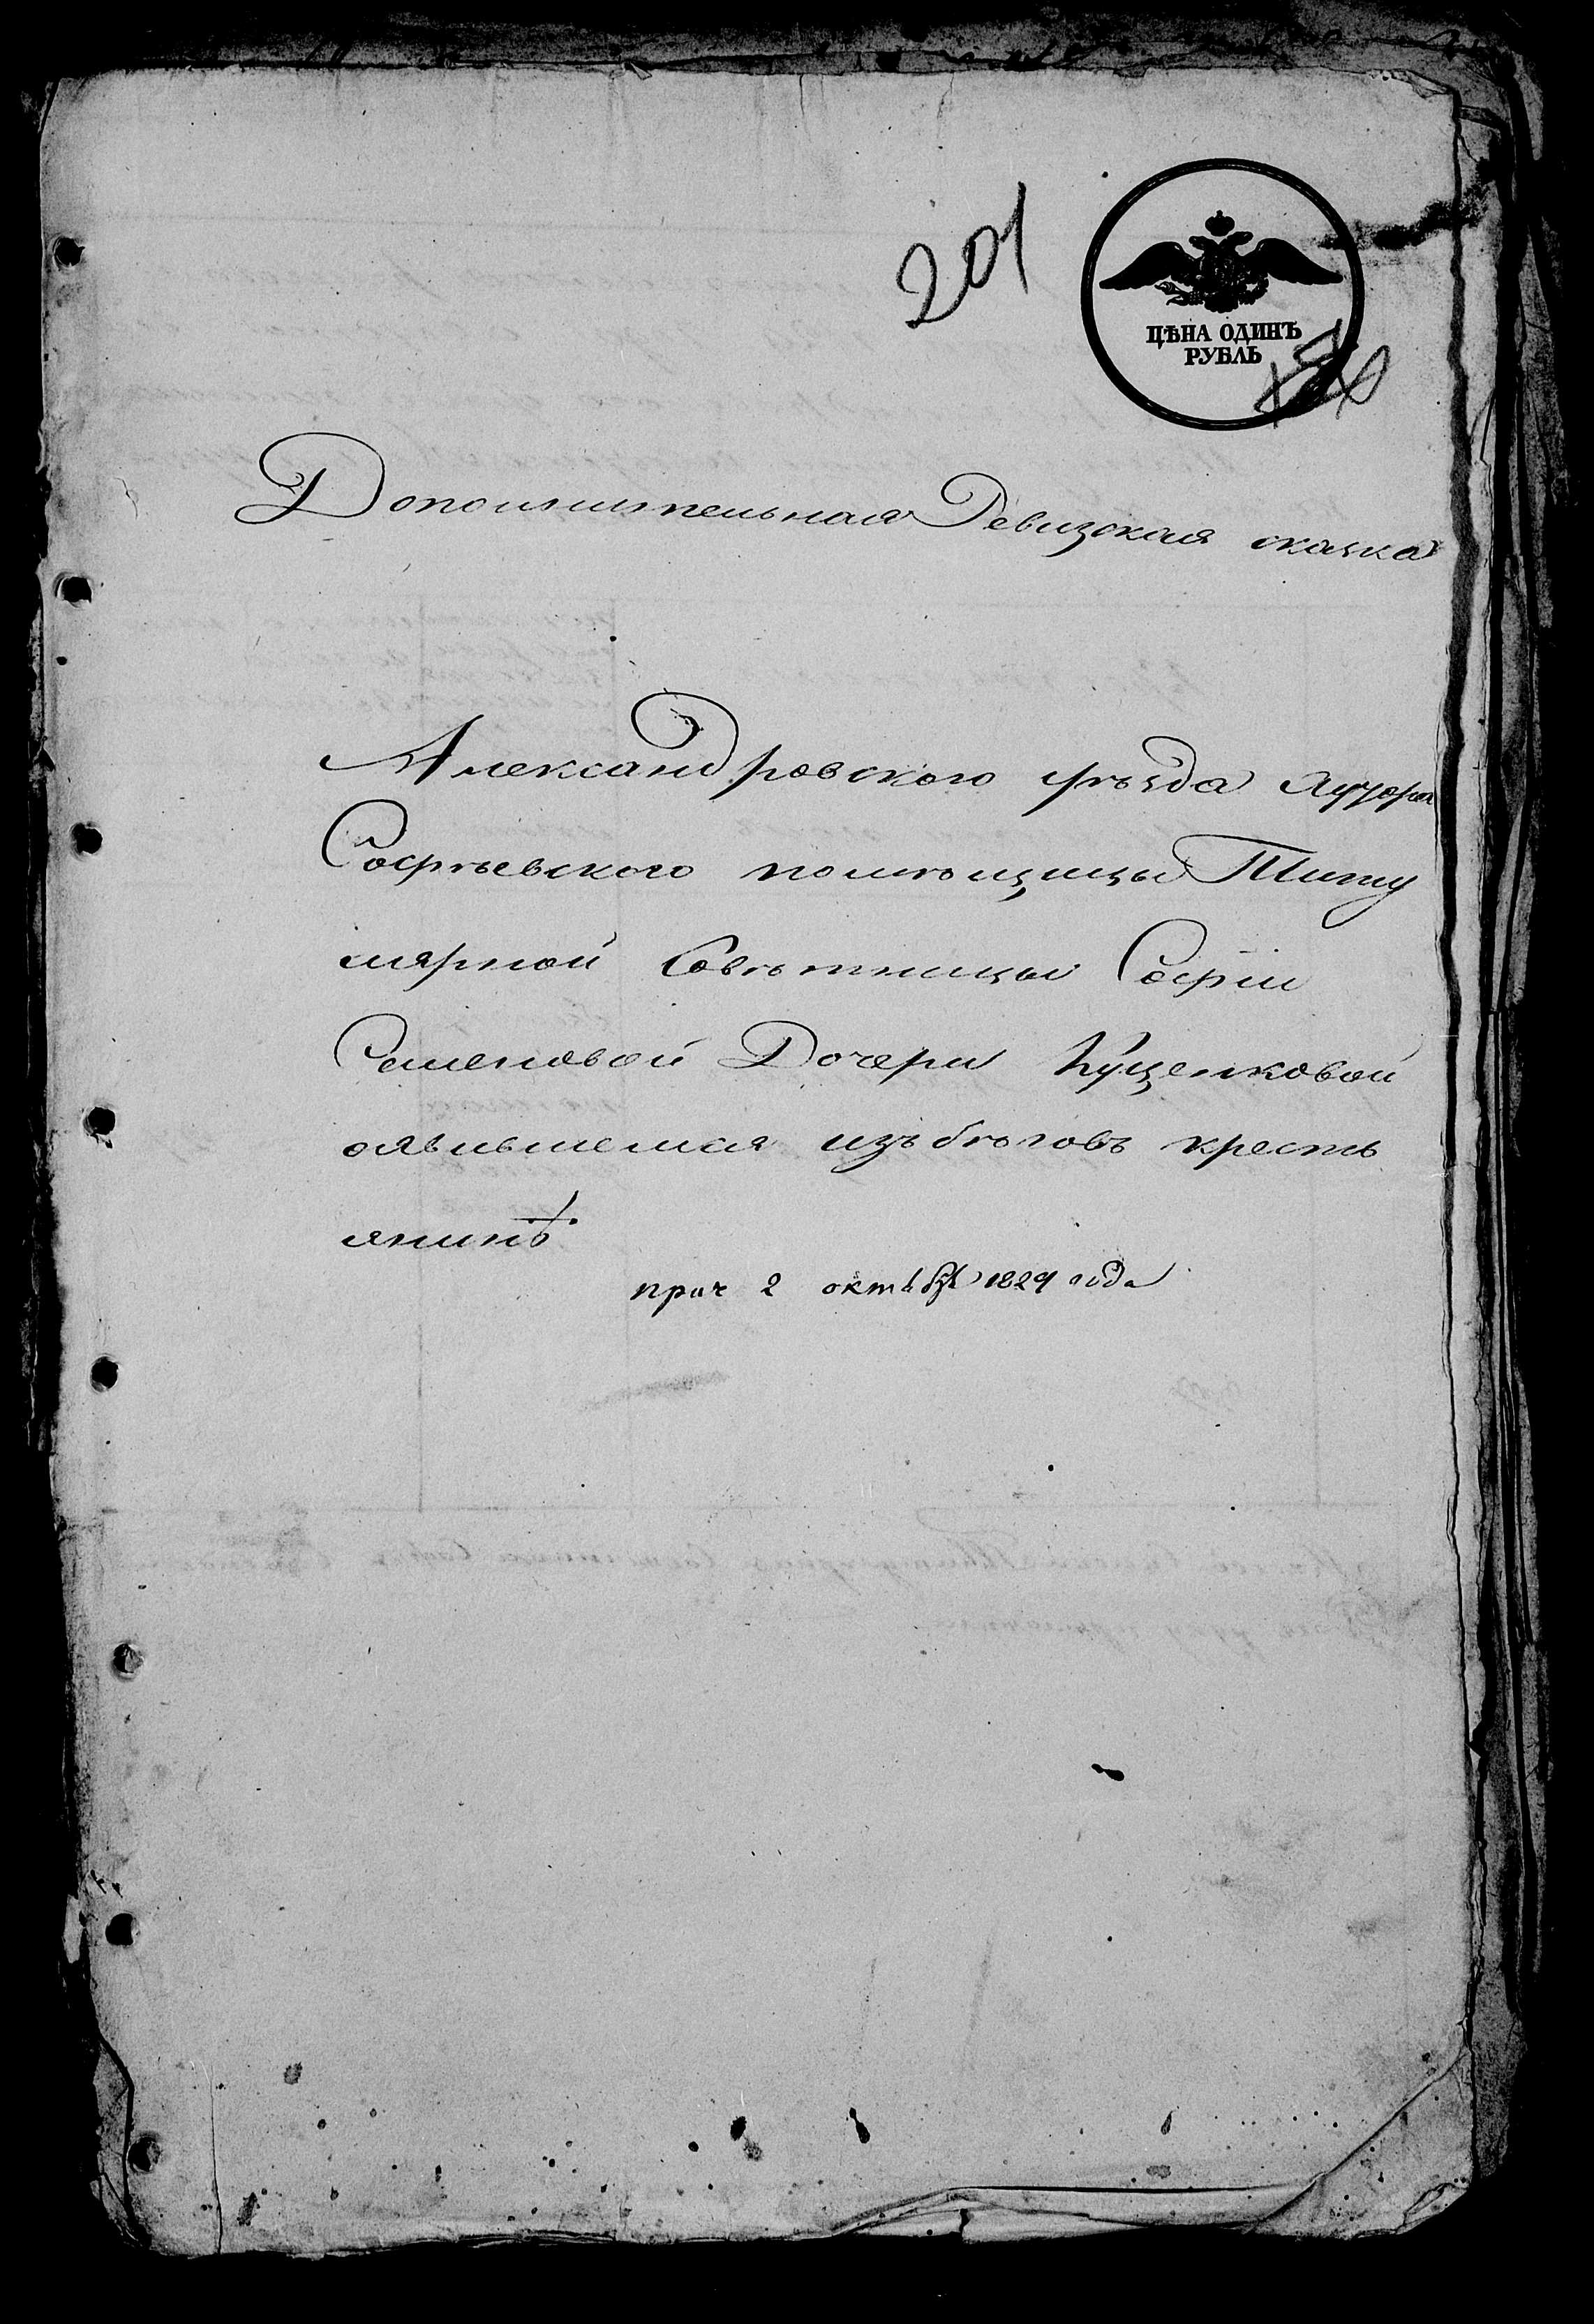 201
ЦѢНА ОДИНЪ
РУБЛЬ
Дополнительная Ревизская скаска
Александровского уѣзда хутора
Софѣевского помѣщицы Титу
лярной Совѣтницы Софіи
Семеновой Дочери Куценковой
оявившемся изъ бѣговъ кресть
янинѣ
2 октября 1829 года